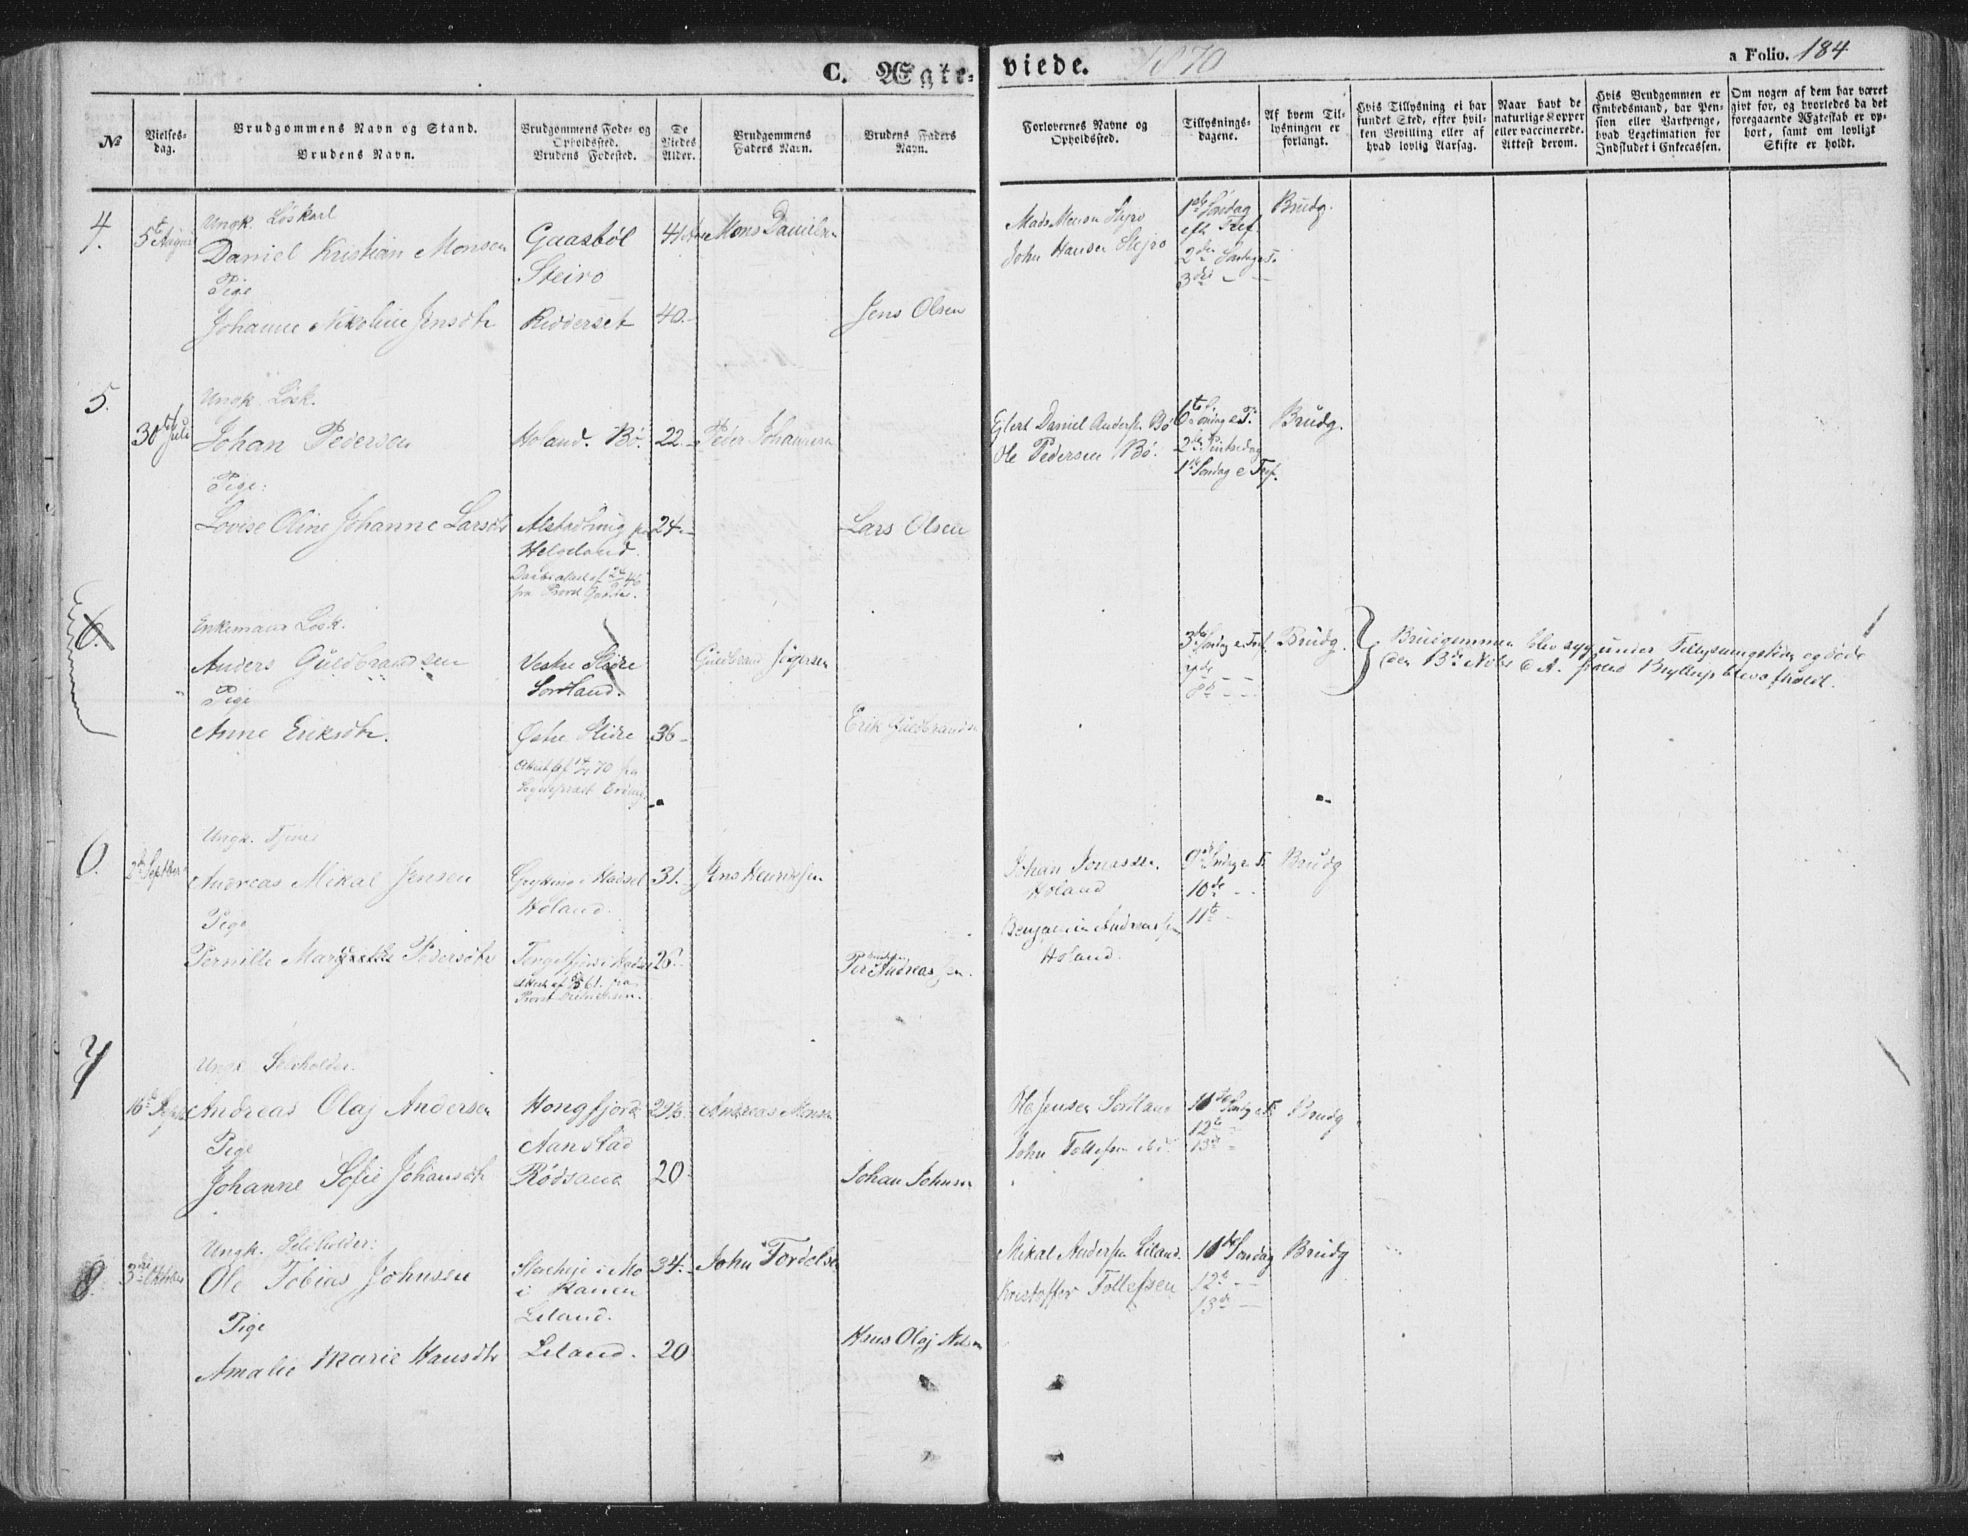 C. Ægte-viede. 1870
a Folio. 184
№
Vielses-
dag.
Brudgommens Navn og Stand.
Brudens Navn.
Brudgommens Føde- og
Opholdssted.
Brudens Fødested.
De
Viedes
Alder.
Brudgommens
Faders Navn.
Brudens Faders
Navn.
Forlovernes Navne og
Opholdssted.
Tillysnings-
dagene.
Af hvem Til-
lysningen er
forlangt.
Hvis Tillysning ei har
fundet Sted, efter hvil-
ken Bevilling eller af
hvad lovlig Aarsag.
Naar havt de
naturlige Kopper
eller vaccinerede.
Attest derom.
Hvis Brudgommen er
Embedsmand, har Pen-
sion eller Vartpenge,
hvad Legetimation for
Indskudet i Enkecassen.
Om nogen af dem har været
givt for, og hvorledes da det
foregaaende Ægteskab er op-
hørt, samt om lovligt
Skifte er holdt.
4.
5te August
Ungk. Løskarl
Daniel Kristian Monsen
Pige
Johanne Nikoline Jensdtr
Gaasbøl
Steiro
Ridderset
41
40.
Mons Danielsen
Jens Olsen
Mads Monsen Stejro
John Hansen Stejro
1ste Søndag
eft Tref
2den Søndag e T.
3die - -
Brudg.
5.
30te Juli
Ungk. Løsk.
Johan Pedersen
Pige:
Lovise Oline Johanne Larsdtr
Holand. Bø.
Alstadhoug paa
Helgeland.
Daabsattest af 24/9 46
fra Provst
22
24
Peder Johannesen
Lars Olsen
Eglert Daniel Anders. Bø
Ole Pedersen Bø.
6te S.
2den Pintsedag
1ste Søndag e Tref.
Brudg.
6.
Enkemand Løsk.
Anders Guldbrandsen
Pige
Anne Eriksdtr.
Vestre Slidre
Sortland.
Østre Slidre
Attest af 70 fra
Sognepræst
36
Guldbrand
Erik Guldbrands
3die Søndag e Tref.
7de - -
8de - -
Brudg.
Brudgommen blev syg under Tillysningstiden og døde
den 13de Novbr d. A. førend Bryllup blev afholdt.
6.
2den September
Ungk. Tjener
Andreas Mikal Jensen
Pige
Pernille Margrethe Pedersdtr
i Hadsel
Holand.
i Hadsel
Attest af 61. fra
Provst
31.
26.
Jens Henriksen
Per Andreas
Johan Jonassen
Holand
Benjamin Andreassen
Holand.
9de Søndag e. T.
10de - -
11te -
Brudg
7
16de Septbr
Ungk Selvholder.
Andreas Olaj Andersen
Pige
Johanne Sofie Johansdtr
Hongfjord
Aanstad
Rødsand
20
Andreas Monsen
Johan Johnsen
Ole Jensen Sortland
John Tollefsen ibid.
11te Søndag e T.
12te -
13de -
Brudg
8.
3die Oktober
Ungk. Selvholder:
Ole Tobias Johnsen
Pige
Amalie Marie Hansdtr
i Mo
i Ranen
Leland.
Leland.
34.
20
John Tordelsen
Hans Olaj
Mikal Andersen Leland.
Kristoffer Tollefsen
11te Søndag
12te - -
13de -
Brudg